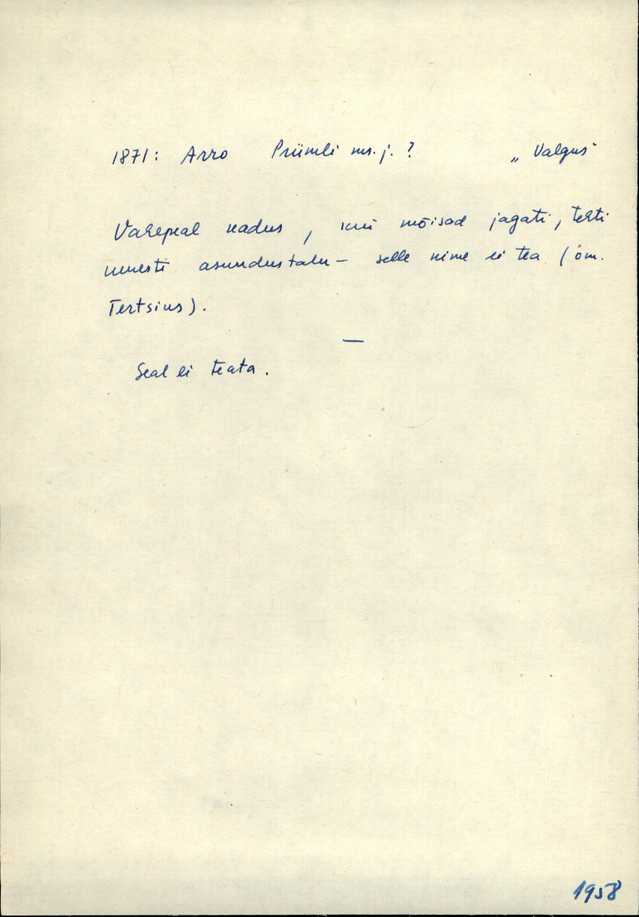 1871: Arro Prümli ms. j. ? „Valgus"
Varepeal kadus, kui mõisad jagati, tehti
uuesti asundustalu – selle nime ei tea (om.
Tertsius).
—
Seal ei teata.
1958